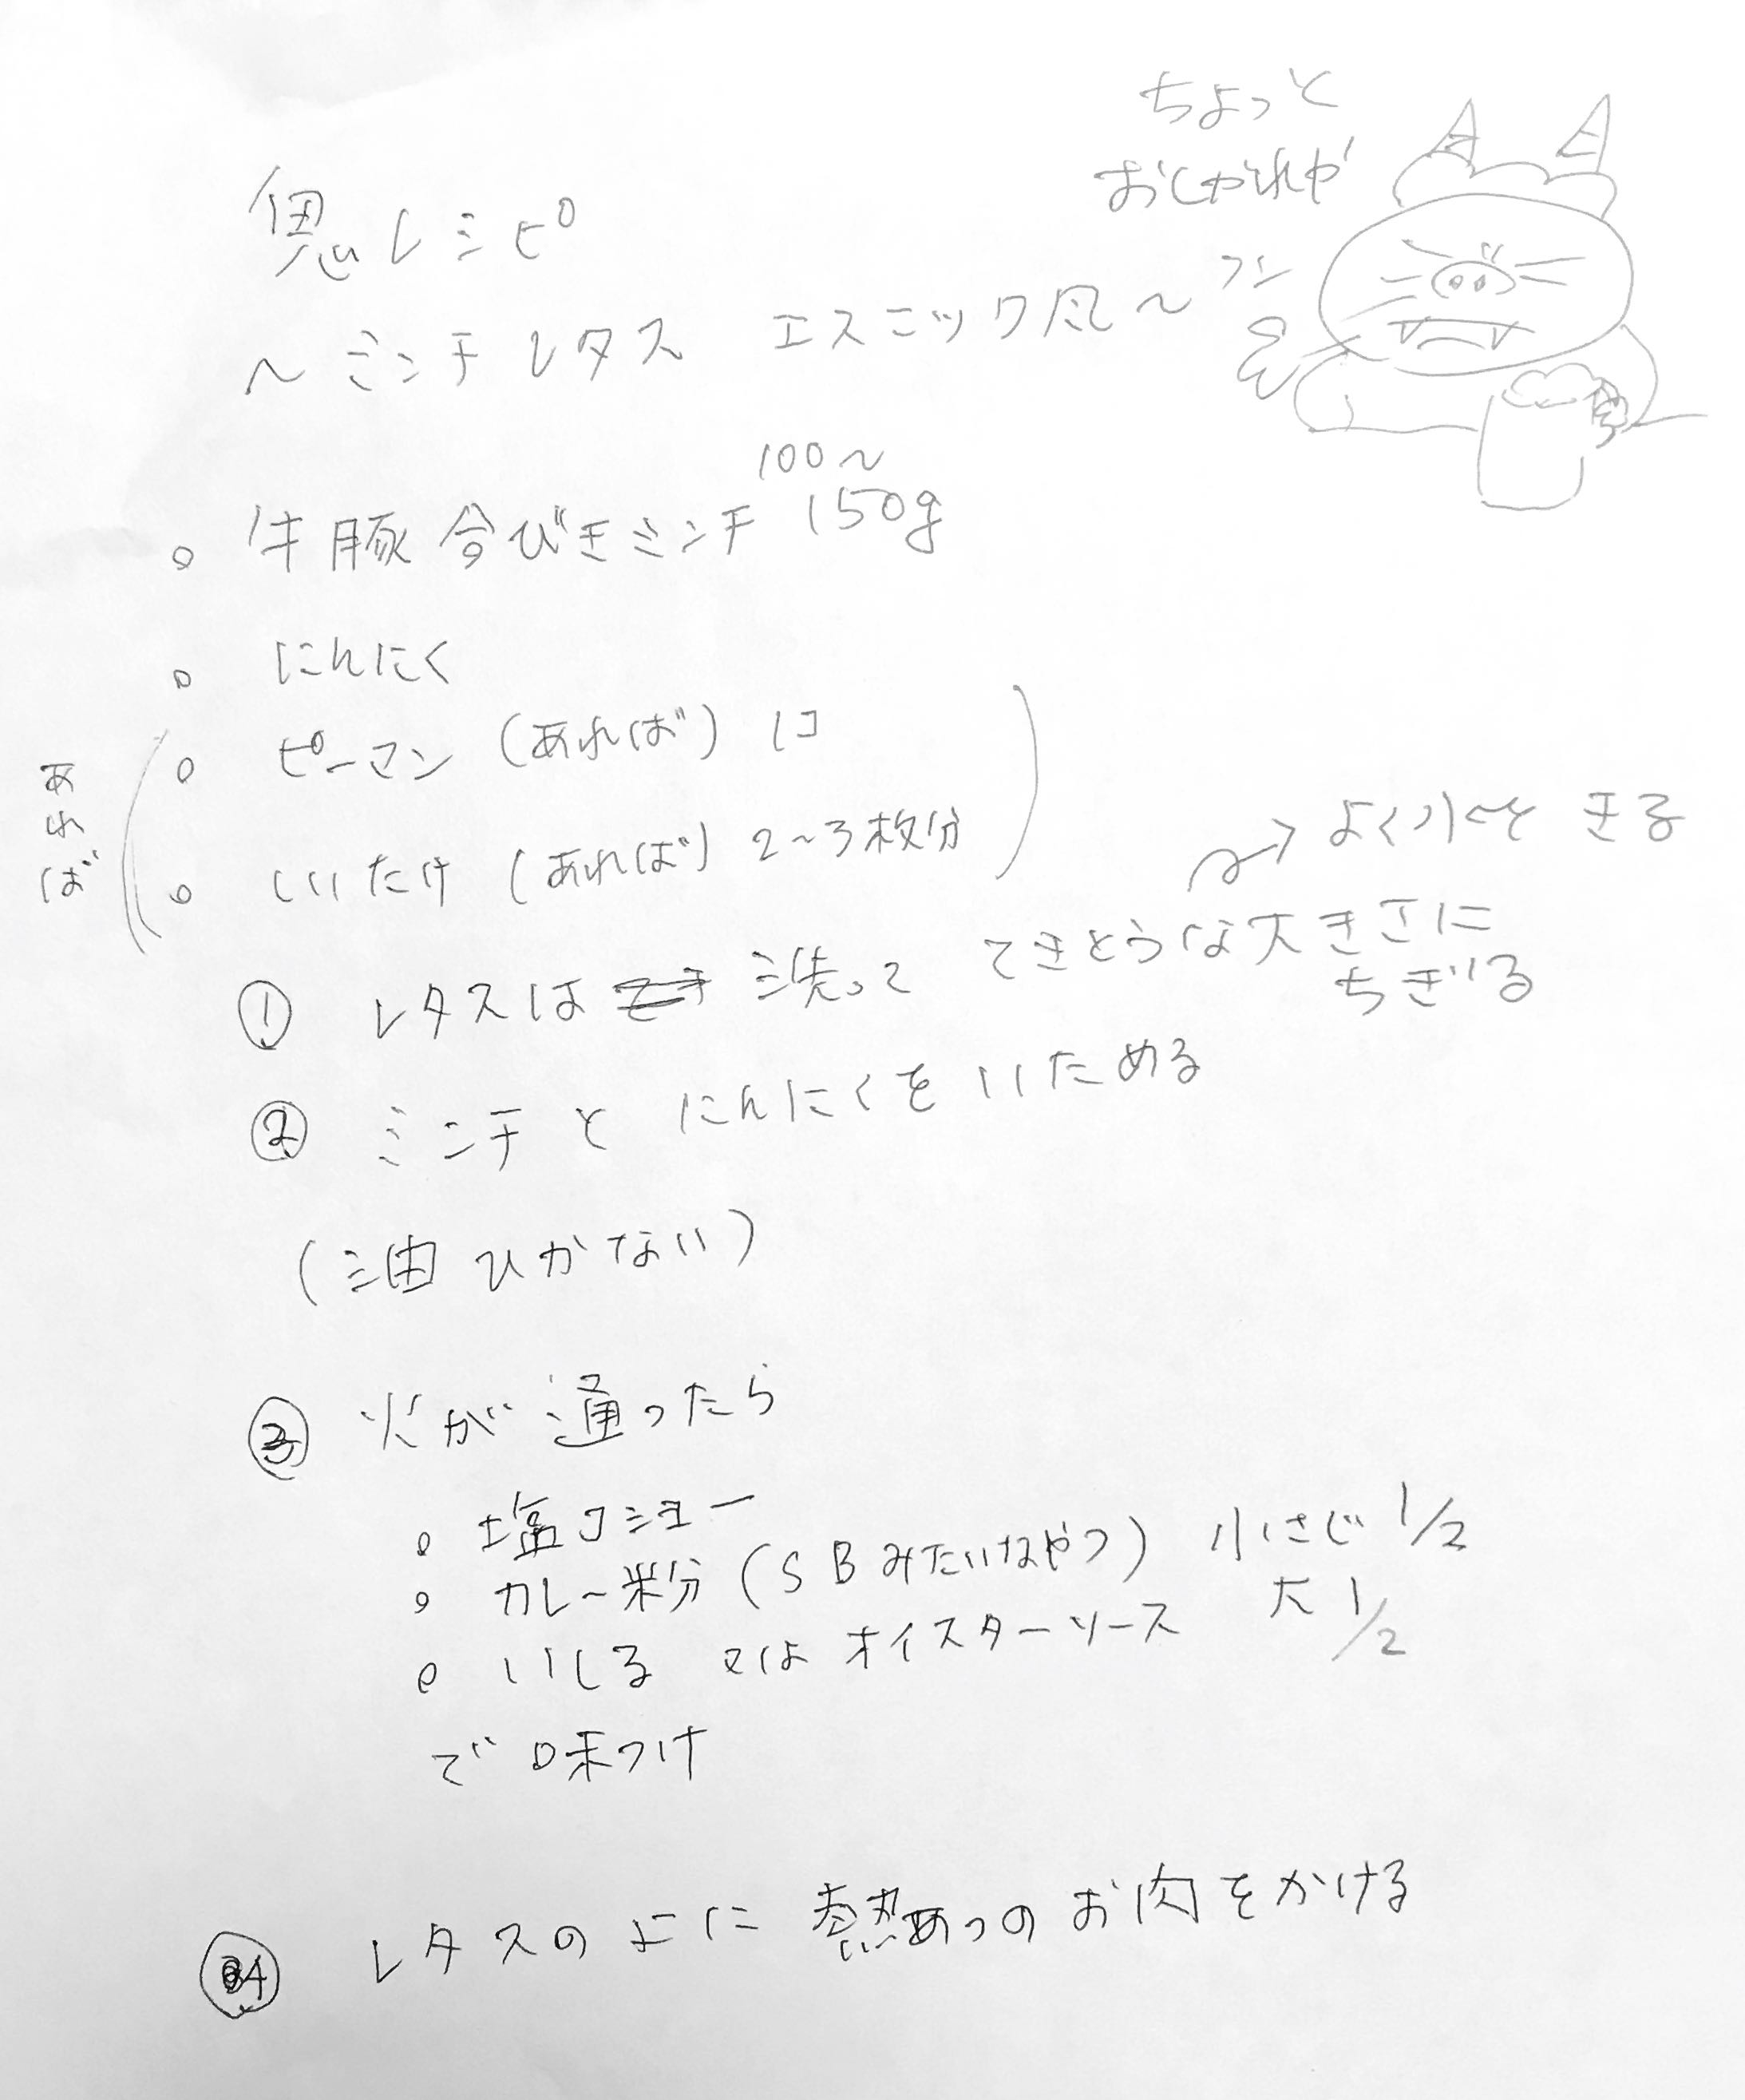 ちょっと
おしゃれや
フン
鬼レシピ
〜ミンチレタス エスニック風〜
牛豚合びきミンチ 100〜150g
にんにく
あれば
ピーマン (あれば) 1コ
しいたけ (あれば) 2〜3枚分
→よく水をきる
① レタスは 洗って てきとうな大きさに
ちぎる
② ミンチと にんにくを いためる
(油ひかない)
③ 火が通ったら
塩コショー
カレー粉 (SBみたいなやつ) 小さじ 1/2
いしる 又は オイスターソース 大 1/2
で味つけ
④ レタスの上に 熱あつのお肉をかける